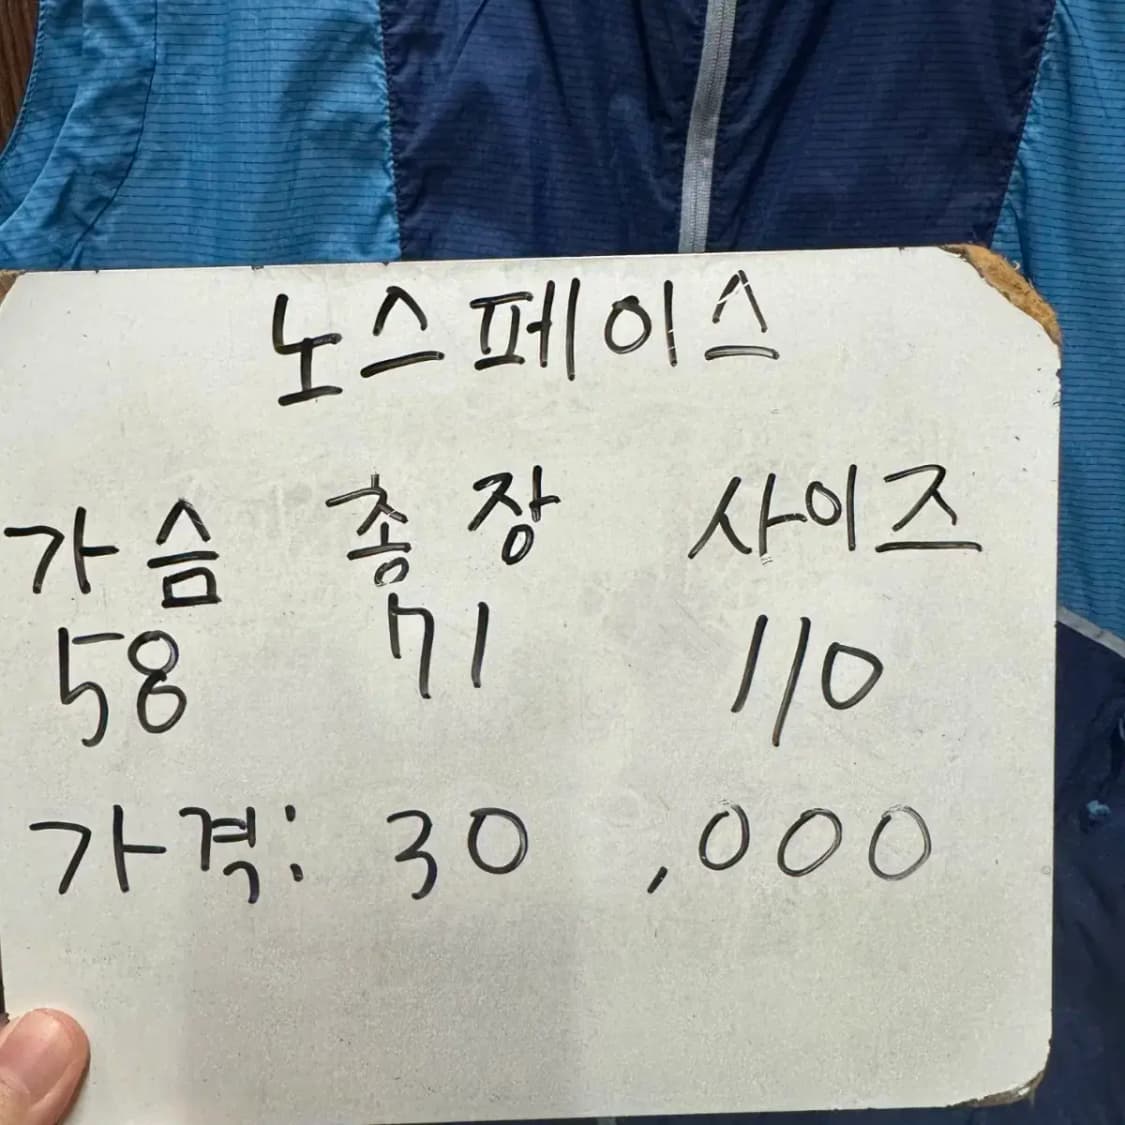 노스페이스
가슴 총장 사이즈
58 71 110
가격: 30,000